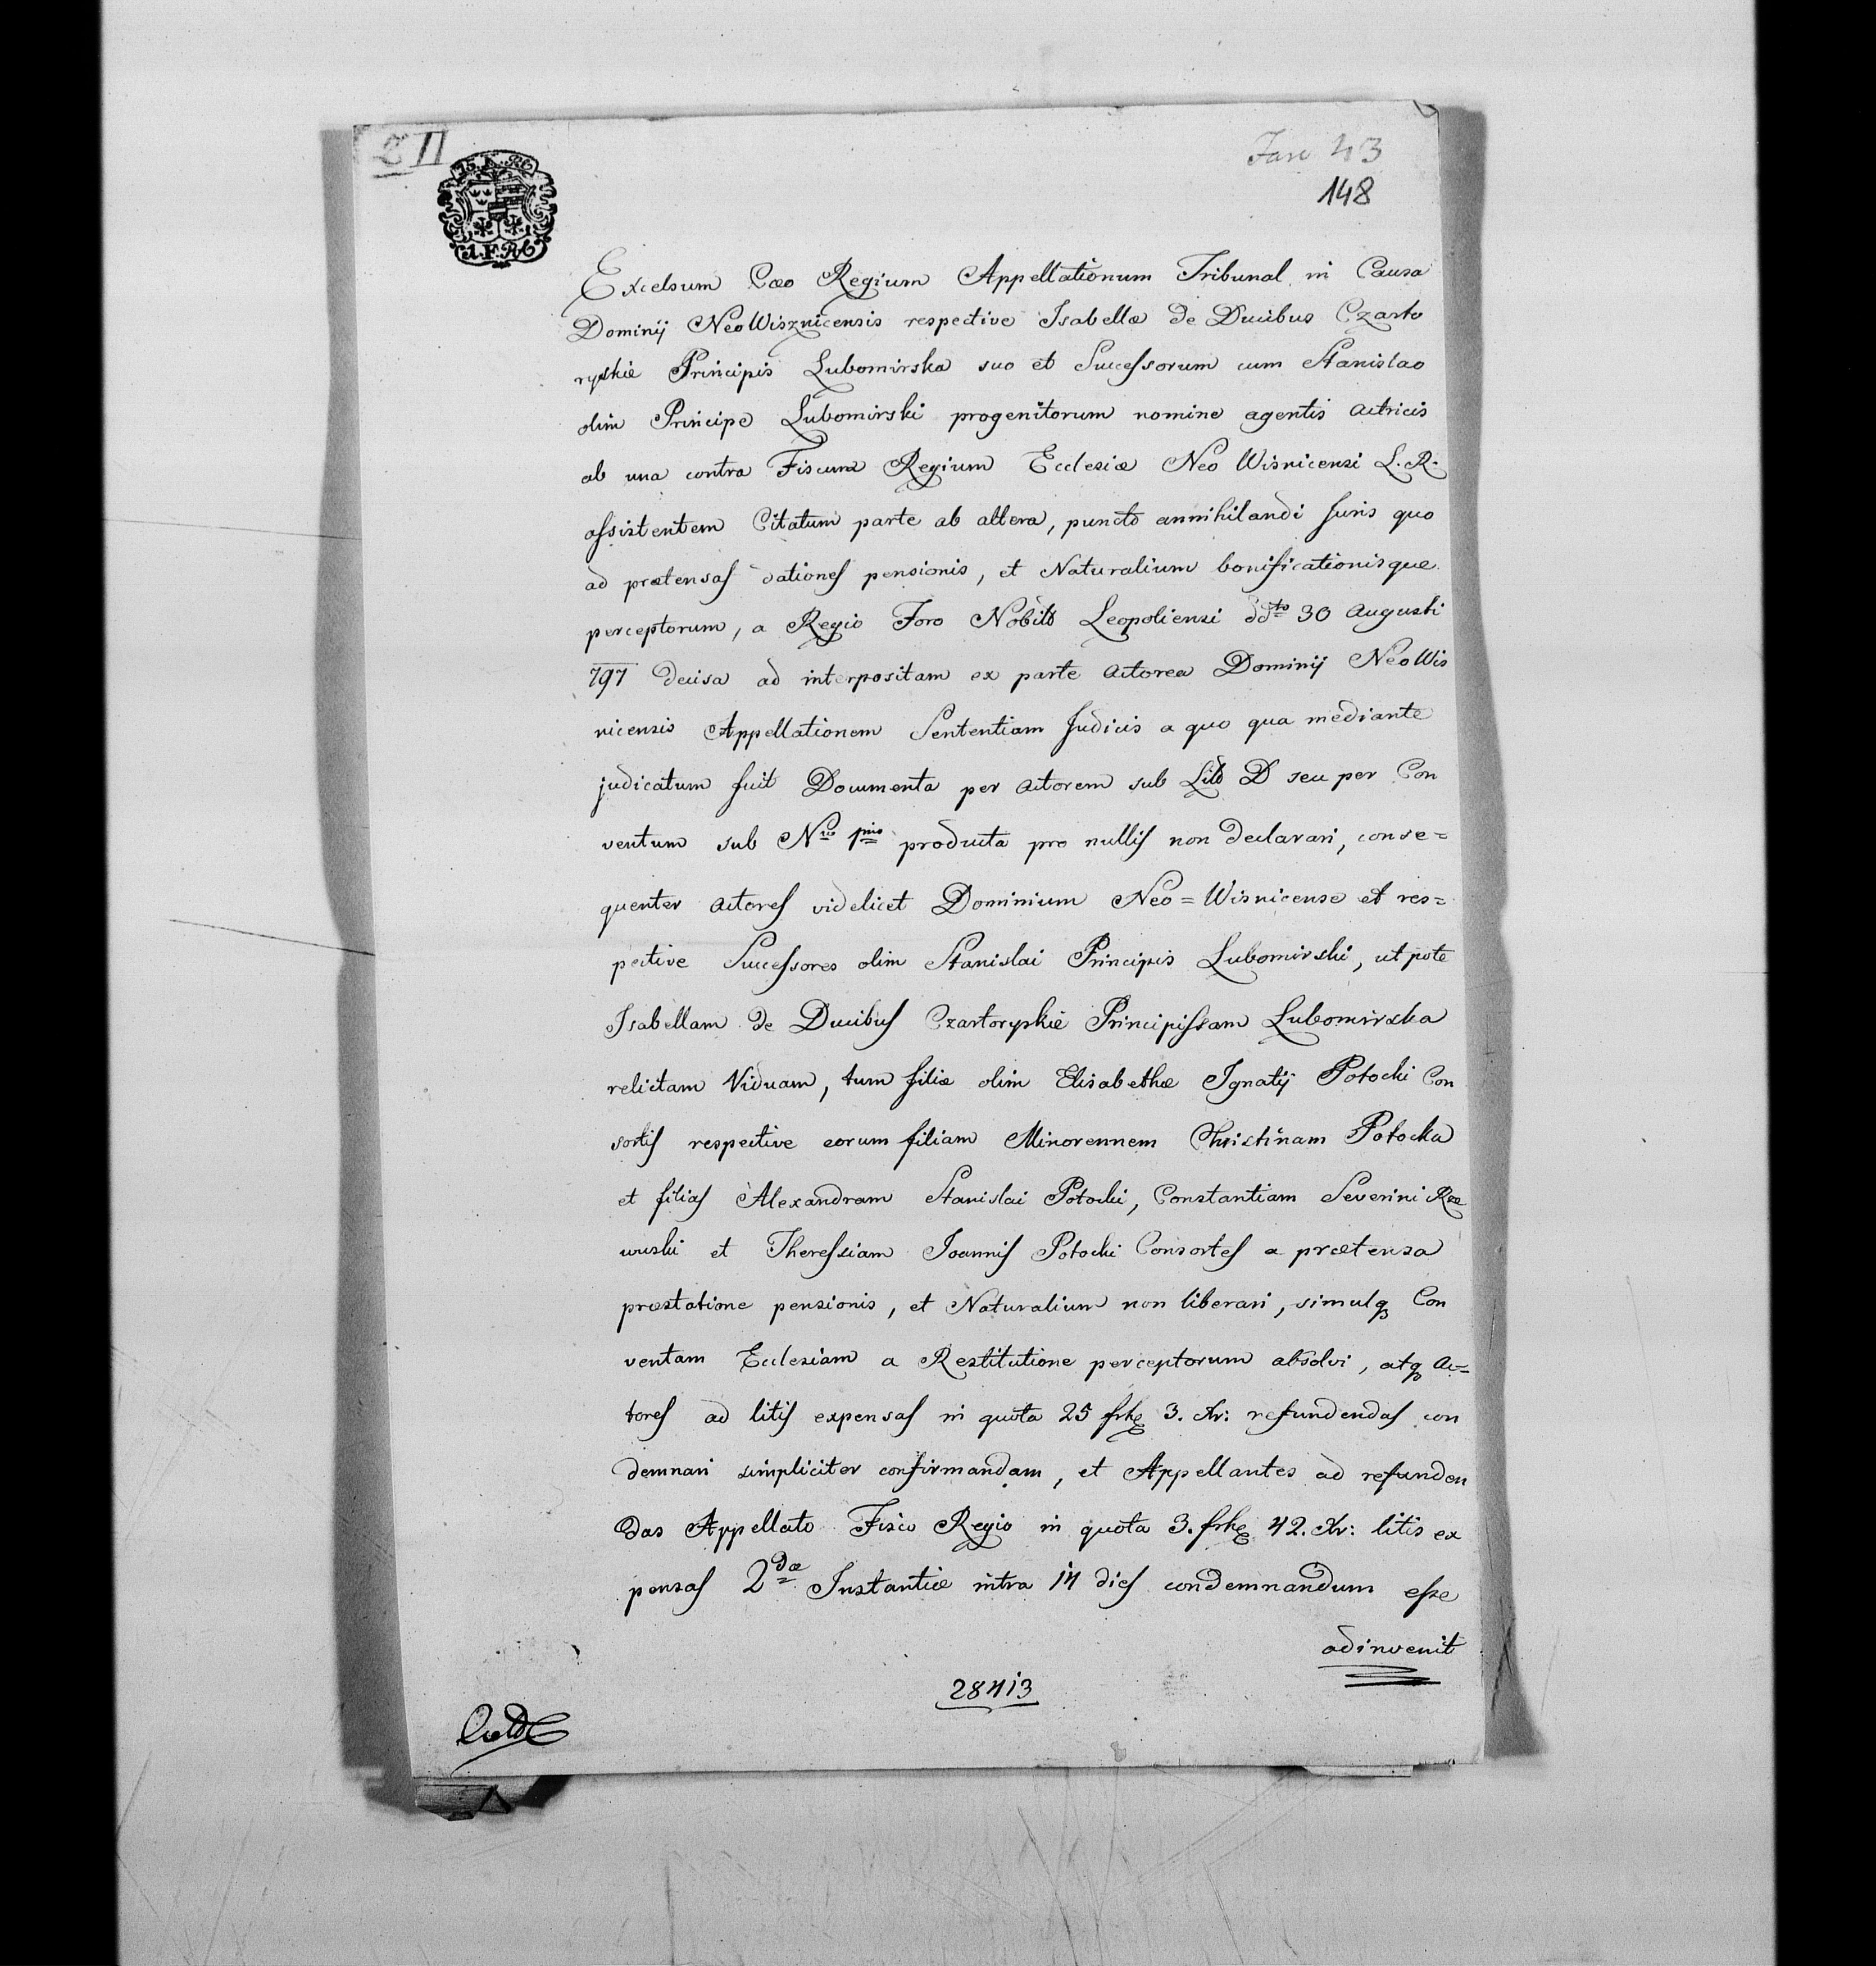 C II
Fasc 43
148
15. K. R.
A. F. R.
Excelsum Cæo Regium Appellationum Tribunal in Causa
Dominij NeoWisznicensis respective Isabellæ de Ducibus Czarto
ryskie Principis Lubomirska suo et Successorum cum Stanislao
olim Principe Lubomirski progenitorum nomine agentis actricis
ab una contra Fiscum Regium Ecclesiæ Neo Wisnicensi L. R.
assistentem Citatum parte ab altera, puncto annihilandi Juris quo
ad prætensas dationes pensionis, et Naturalium bonificationisque
perceptorum, a Regio Foro Nobili Leopoliensi ddto 30 Augusti
797 decisa ad interpositam ex parte actorea Dominij NeoWis
nicensis Appellationem Sententiam Judicis a quo qua mediante
judicatum fuit Documenta per actorem sub Litt D seu per Con
ventum sub Nro 1mo producta pro nullis non declarari, conse=
quenter actores videlicet Dominium Neo=Wisnicense et res=
pective Successores olim Stanislai Principis Lubomirski, ut pote
Isabellam de Ducibus Czartoryskie Principissam Lubomirska
relictam Viduam, tum filiæ olim Elisabethæ Ignatij Potocki Con
sortis respective eorum filiam Minorennem Christinam Potocka
et filias Alexandram Stanislai Potocki, Constantiam Severini Rze
wuski et Theressiam Joannis Potocki Consortes a prætensa
præstatione pensionis, et Naturalium non liberari, simulq Con
ventam Ecclesiam a Restitutione perceptorum absolvi, atq Ac=
tores ad litis expensas in quota 25 frh 3. Xr: refundendas con
demnari simpliciter confirmandam, et Appellantes ad refunden
das Appellato Fisco Regio in quota 3. frh 42. Xr: litis ex
pensas 2dæ Instantiæ intra 14 dies condemnandum esse
adinvenit
28413